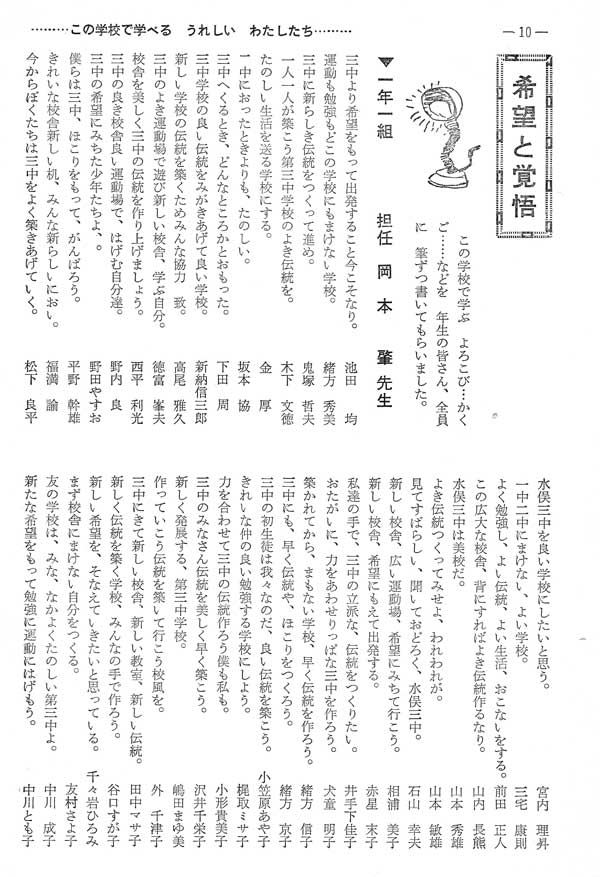 ………この学校で学べる　うれしい　わたしたち………
—10—
希望と覚悟
この学校で学ぶ　よろこび…かく
ご……などを　年生の皆さん、全員
に　筆ずつ書いてもらいました。
▼一年一組　担任　岡本　肇　先生
三中より希望をもって出発すること今こそなり。　池田　均
運動も勉強もどこの学校にもまけない学校。　緒方　秀美
三中に新らしき伝統をつくって進め。　鬼塚　哲夫
一人一人が築こう第三中学校のよき伝統を。　木下　文徳
たのしい生活を送る学校にする。　金　厚
一中におったときよりも、たのしい。　坂本　協
三中へくるとき、どんなところかとおもった。　下田　周
三中学校の良い伝統をみがきあげて良い学校。　新納信三郎
新しい学校の伝統を築くためみんな協力　致。　高尾　雅久
三中のよき運動場で遊び新しい校舎、学ぶ自分。　徳富　峯夫
校舎を美しく三中の伝統を作り上げましょう。　西平　利光
三中の良き校舎良い運動場で、はげむ自分達。　野内　良
三中の希望にみちた少年たちよ、。　野田やすお
僕らは三中、ほこりをもって、がんばろう。　平野　幹雄
きれいな校舎新しい机、みんな新らしいにおい。　福満　諭
今からぼくたちは三中をよく築きあげていく。　松下　良平
水俣三中を良い学校にしたいと思う。　宮内　理昇
一中二中にまけない、よい学校。　三宅　康則
よく勉強し、よい伝統、よい生活、おこないをする。　前田　正人
この広大な校舎、背にすればよき伝統作るなり。　山内　長熊
水俣三中は美校だ。　山本　秀雄
よき伝統つくってみせよ、われわれが。　山本　敏雄
見てすばらしい、聞いておどろく、水俣三中。　石山　幸夫
新しい校舎、広い運動場、希望にみちて行こう。　相浦　美子
新しい校舎、希望にもえて出発する。　赤星　末子
私達の手で、三中の立派な、伝統をつくりたい。　井手下佳子
おたがいに、力をあわせりっぱな三中を作ろう。　犬童　明子
築かれてから、まもない学校、早く伝統を作ろう。　緒方　信子
三中にも、早く伝統や、ほこりをつくろう。　緒方　京子
三中の初生徒は我々なのだ、良い伝統を築こう。　小笠原あや子
きれいな仲の良い勉強する学校にしよう。　梶取ミサ子
力を合わせて三中の伝統作ろう僕も私も。　小形貴美子
三中のみなさん伝統を美しく早く築こう。　沢井千栄子
新しく発展する、第三中学校。　嶋田まゆ美
作っていこう伝統を築いて行こう校風を。　外　千津子
三中にきて新しい校舎、新しい教室、新しい伝統。　田中マサ子
新しく伝統を築く学校、みんなの手で作ろう。　谷口すが子
新しい希望を、そなえていきたいと思っている。　千々岩ひろみ
まず校舎にまけない自分をつくる。　友村さよ子
友の学校は、みな、なかよくたのしい第三中よ。　中川　成子
新たな希望をもって勉強に運動にはげもう。　中川とも子